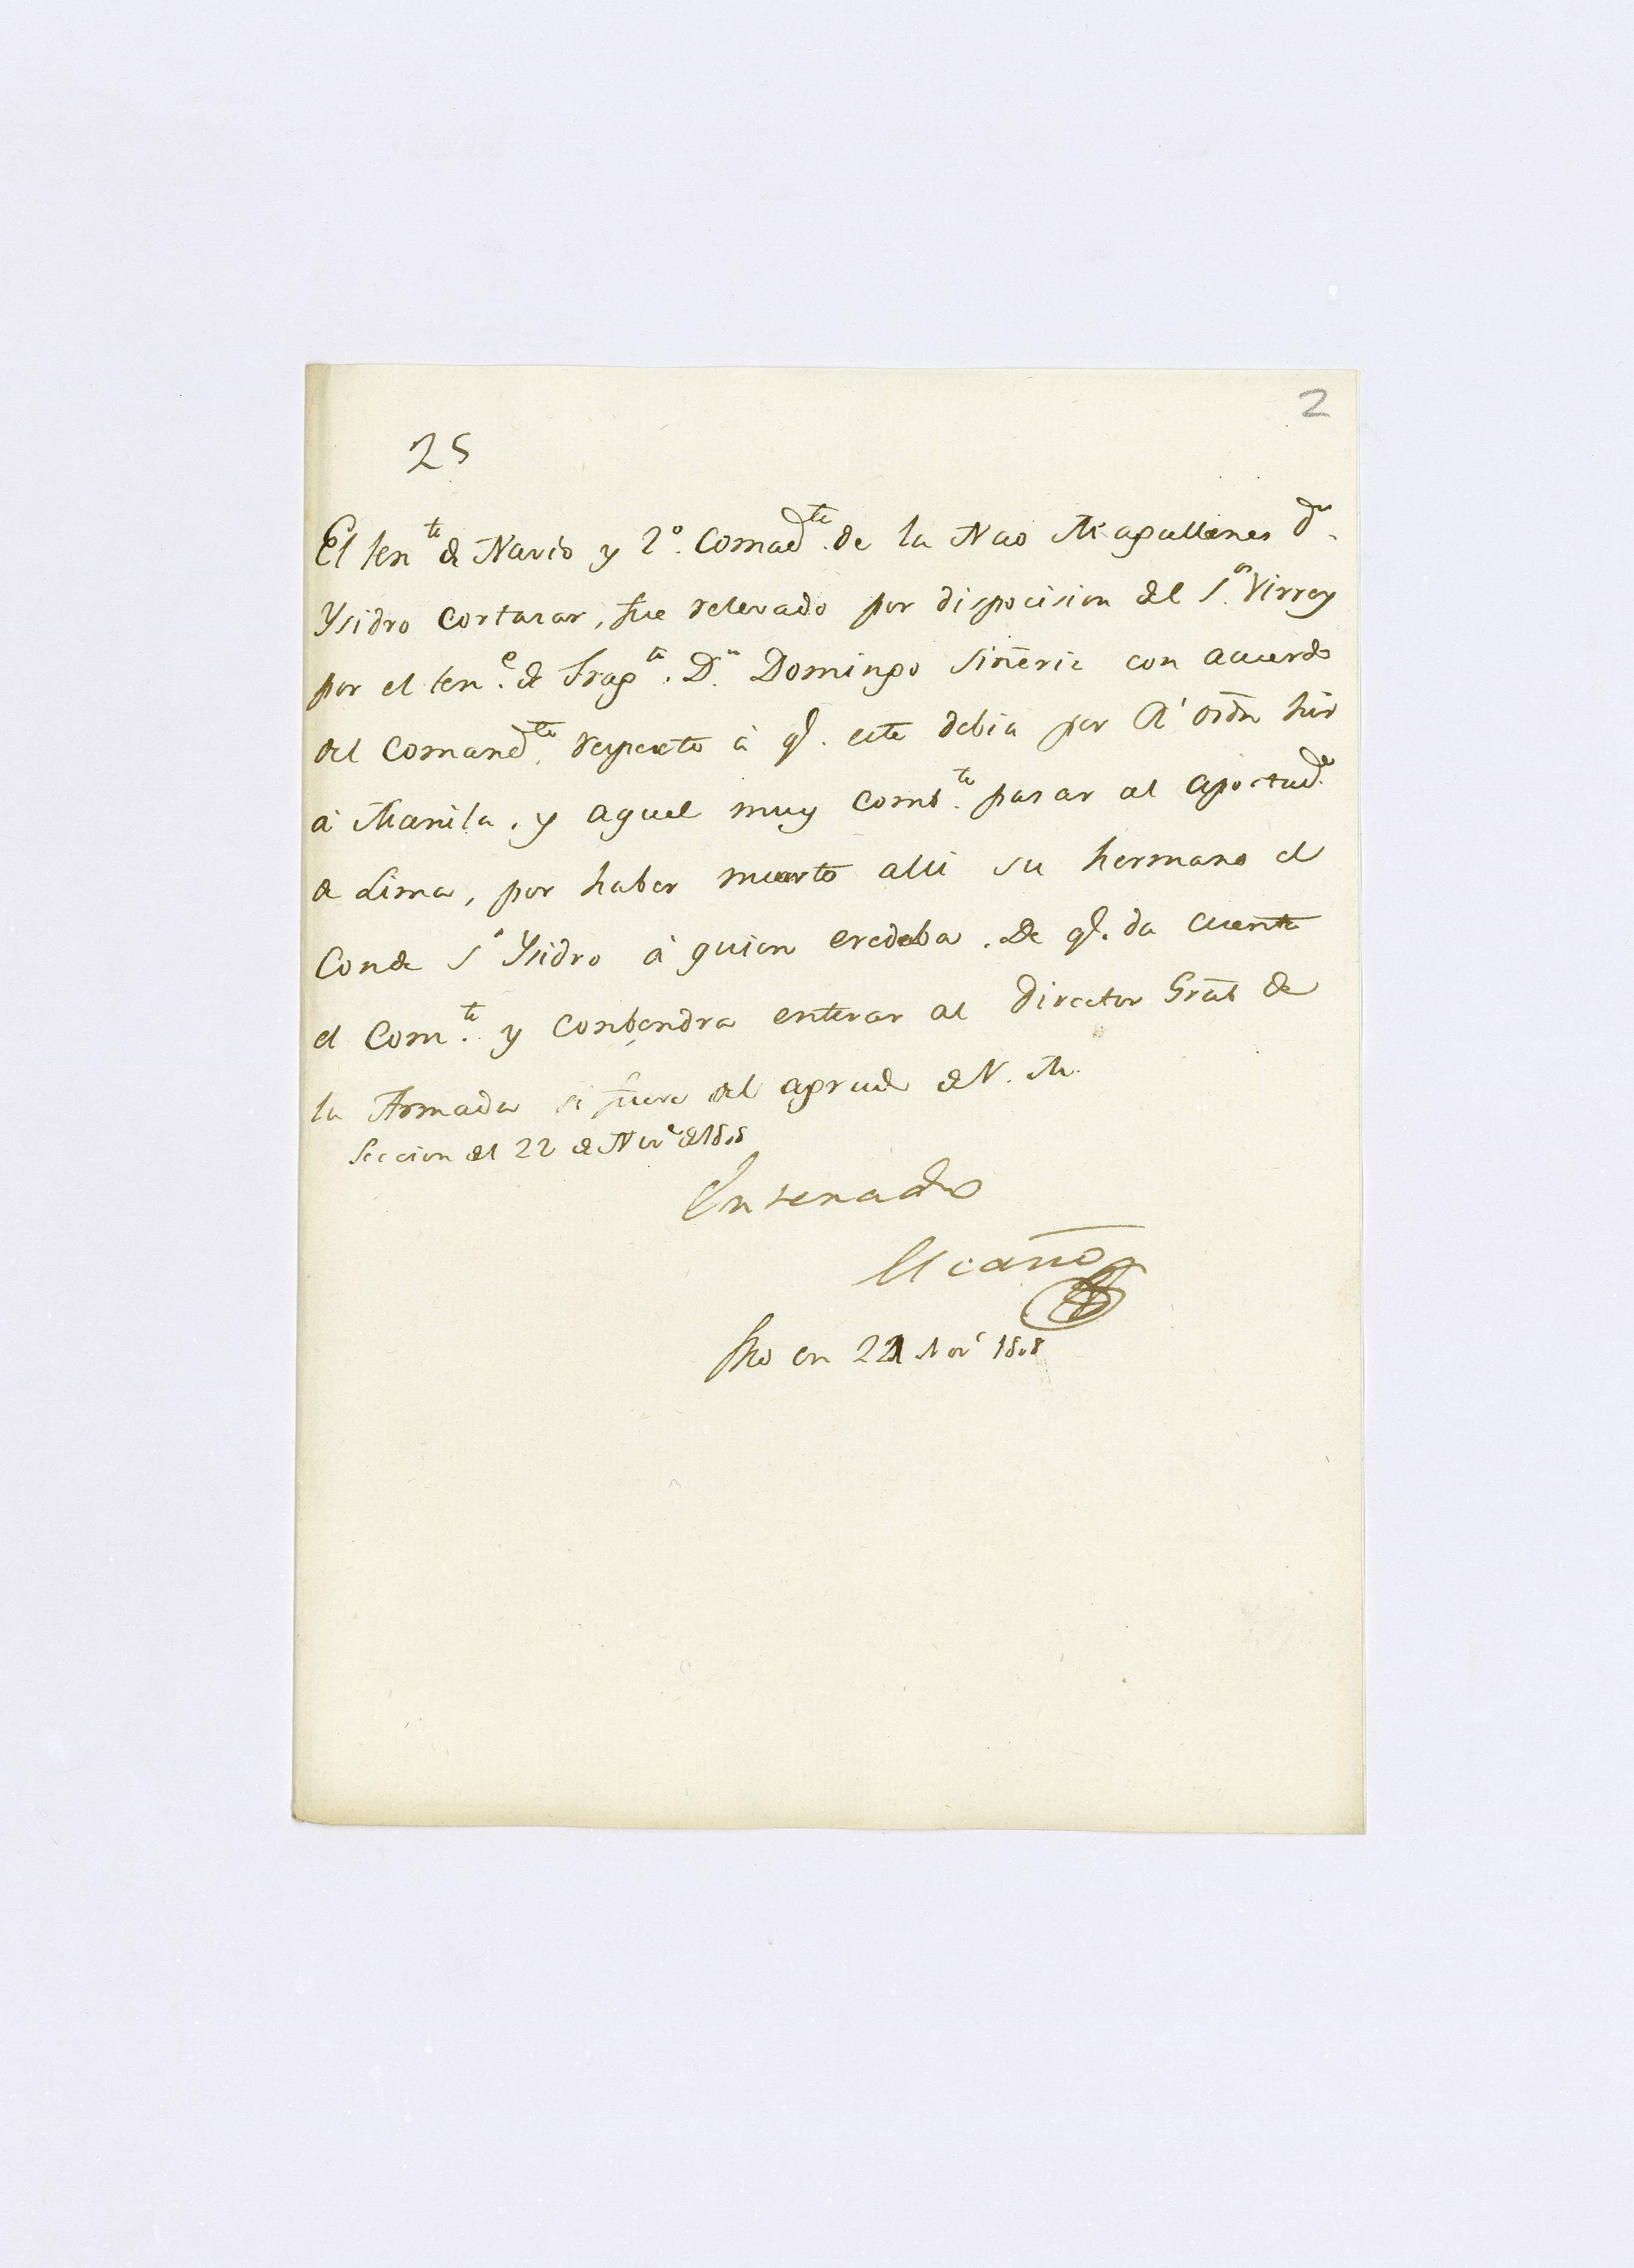 2
25
El ten.te de Navio y 2º. Comad.te de la Nao Magallanes Dn.
Ysidro Cortasar, fue relevado por dispocision del S.or Virrey
por el ten.e de Frag.ta Dn. Domingo Siñeriz con acuerdo
del Comand.te respecto à q.e este debia por Rl. ordn hir
à Manila, y aquel muy comb.te pasar al apostad.o
de Lima, por haber muerto alli su hermano el
Conde Sn Ysidro à quien eredaba. De q.e da cuenta
el Com.te y conbendra enterar al Director Gral de
la Armada si fuere del agrado de V. M.
Seccion del 22 de Nov.e de 1808
Enterado
Escaño
fho en 22 Nov.e 1808